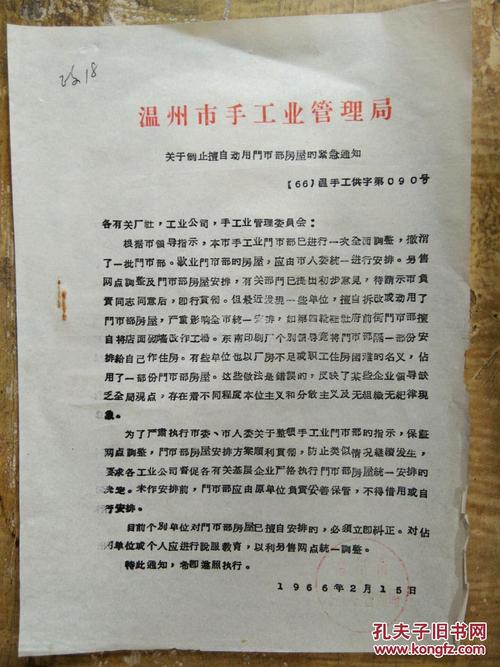 政18
温州市手工业管理局
关于制止擅自动用門市部房屋的緊急通知
〔66〕温手工供字第090号
各有关厂社，工业公司，手工业管理委員会：
根据市領导指示，本市手工业門市部已进行一次全面調整，撤消
了一批門市部。歇业門市部的房屋，应由市人委統一进行安排。另售
网点調整及門市部房屋安排，有关部門已提出初步意見，待請示市負
責同志同意后，即行貫彻。但最近发現一些单位，擅自拆改或动用了
門市部房屋，严重影响全市統一安排，如第四鞋社府前街門市部擅
自将店面砌墙改作工場。东南印刷厂个别領导竟将門市部隔一部份安
排給自己作住房。有些单位也以厂房不足或职工住房困难的名义，佔
用了一部份門市部房屋。这些做法是錯誤的，反映了某些企业領导缺
乏全局观点，存在着不同程度本位主义和分散主义及无組織无紀律現
象。
为了严肃执行市委、市人委关于整頓手工业門市部的指示，保証
网点調整，門市部房屋安排方案順利貫彻，防止类似情况継續发生，
要求各工业公司督促各有关基层企业严格执行門市部房屋統一安排的
决定。未作安排前，門市部应由原单位負責妥善保管，不得借用或自
行安排。
目前个别单位对門市部房屋已擅自安排的，必須立即糾正。对佔
用单位或个人应进行說服教育，以利另售网点統一調整。
特此通知，希即遵照执行。
1966年2月15日
孔夫子旧书网
www.kongfz.com